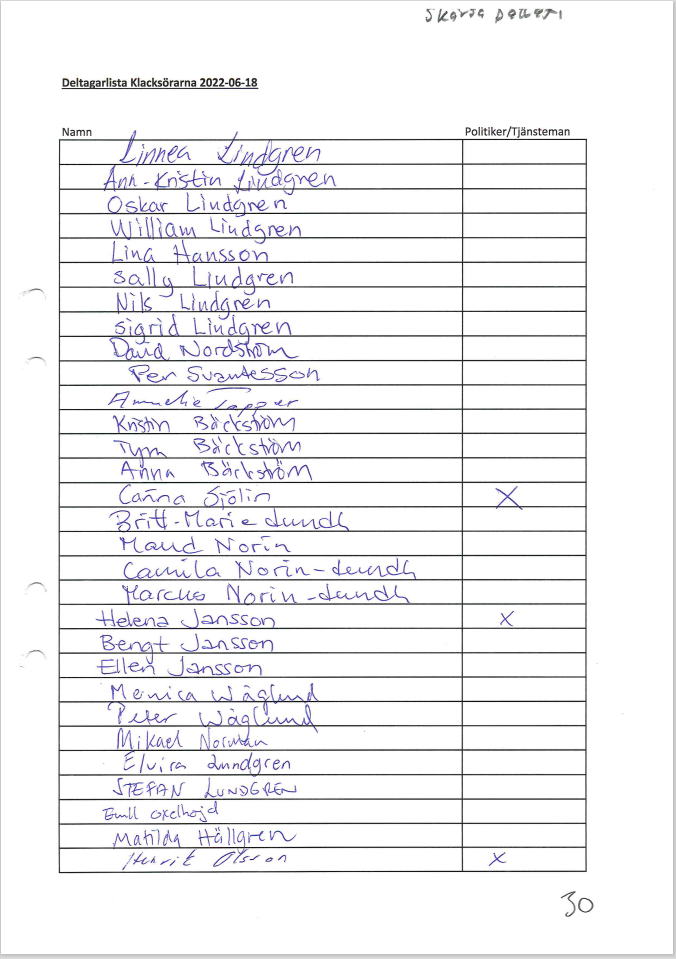 Deltagarlista Klacksörarna 2022-06-18
Namn Politiker/Tjänsteman
Linnea Lindgren
Ann-Kristin Lindgren
Oskar Lindgren
William Lindgren
Lina Hansson
Sally Lindgren
Nils Lindgren
Sigrid Lindgren
David Nordström
Per Svantesson
Annelie Tapper
Kristin Bäckström
Bäckström
Anna Bäckström
Carina Sjölin X
Britt-Marie Lundh
Maud Norin
Camila Norin-Lundh
Marcus Norin-Lundh
Helena Jansson X
Bengt Jansson
Ellen Jansson
Monica Wåglund
Peter Wåglund
Mikael Norman
Elvira Lundgren
STEFAN LUNDGREN
Emil
Matilda Hällgren
Henrik Olsson X
30